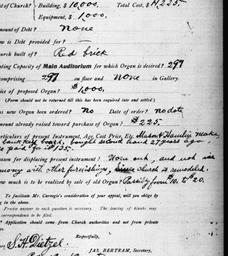 of Church? Building, $10,000. Total Cost, $11,225.
Equipment, $1,000.
Amount of Debt? None
is Debt provided for?
Church built of? Red Brick
Seating Capacity of Main Auditorium for which Organ is desired? 297
comprising 297 on floor and none in Gallery.
Price of proposed Organ? $1,000.
(Form should not be returned till this has been required into and settled.)
new Organ been ordered? No Date of order? no date
amount already raised toward purchase of Organ? $225.
Particulars of present Instrument, Age, Cost Price, Etc. Mason & Hamlin's make
bought second hand 27 years ago
paid for
reason for displacing present instrument? Worn out, and not in
harmony with other furnishings, since church is remodeled.
much is to be realized by sale of old Organ? Possibly from $10. to $20.
To facilitate Mr. Carnegie's consideration of your appeal, will you oblige
Precise answer to each question is necessary. The leaving of blanks may
correspondence to be filed.
Application should come from Church authorities and not from private
Respectfully,
S. H. Dietzel
JAS. BERTRAM, Secretary,